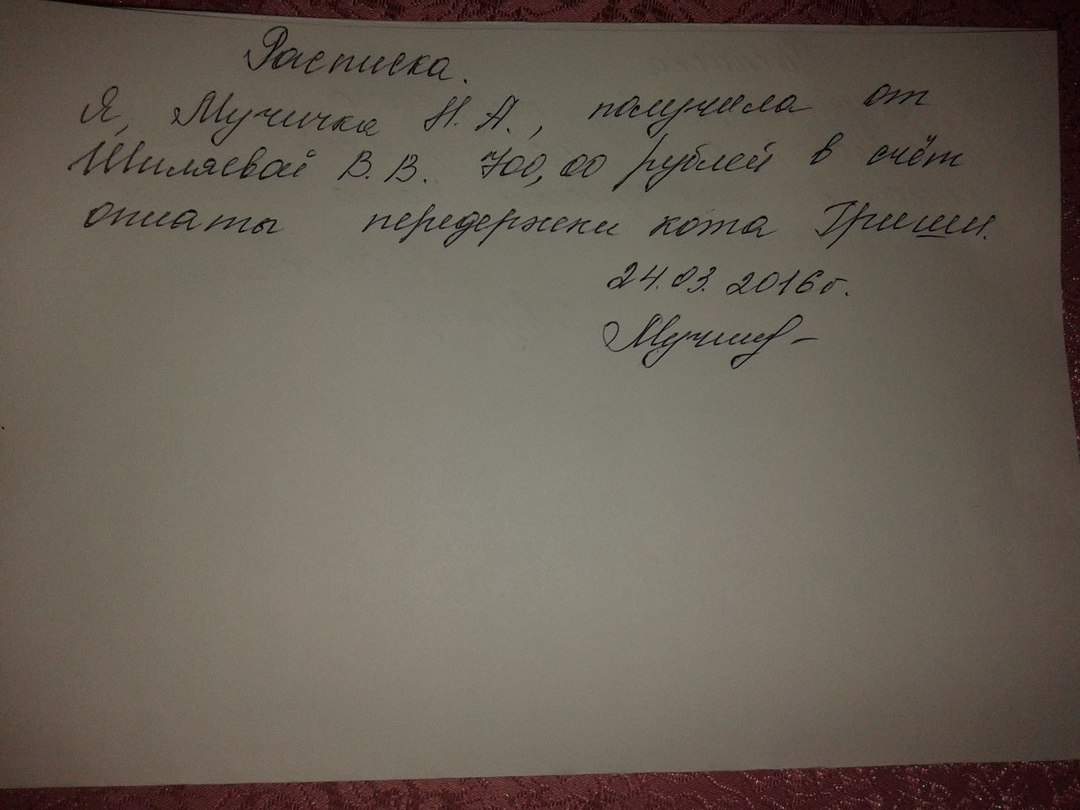 Расписка.
Я, Мучичка Н. А., получила от
Шиляевой В. В. 700,00 рублей в счёт
оплаты передержки кота Гриши.
24.03.2016г.